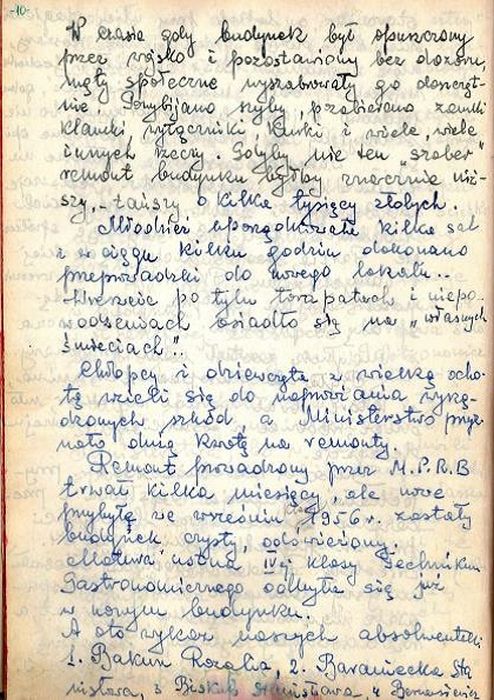 -10-
W czasie gdy budynek był opuszczony
przez wojsko i pozostawiony bez dozoru,
męty społeczne wyszabrowały go doszczęt-
nie. Powybijano szyby, pozabierano zamki
klamki, wyłączniki, kurki i wiele, wiele
innych rzeczy. Gdyby nie ten "szaber"
remont budynku byłby znacznie niż-
szy, - tańszy o kilka tysięcy złotych.
Młodzież uporządkowała kilka sal
i w ciągu kilku godzin dokonano
przeprowadzki do nowego lokalu..
Wreszcie po tylu tarapatach i niepo-
wodzeniach osiadło się na "własnych
śmieciach".
Chłopcy i dziewczęta z wielką ocho-
tą wzięli się do naprawiania wyrzą-
dzonych szkód, a Ministerstwo przyz-
nało dużą kwotę na remonty.
Remont prowadzony przez M.P.R.B
trwał kilka miesięcy, ale nowe
przybyłe we wrześniu 1956 r. zastały
budynek czysty, odświeżony.
Matura ustna IV-ej klasy Technikum
Gastronomicznego odbyła się już
w nowym budynku.
A oto wykaz naszych absolwentek:
1. Bakun Rozalia, 2. Baraniecka Sta
nisława, 3 Biskup Stanisława, 4